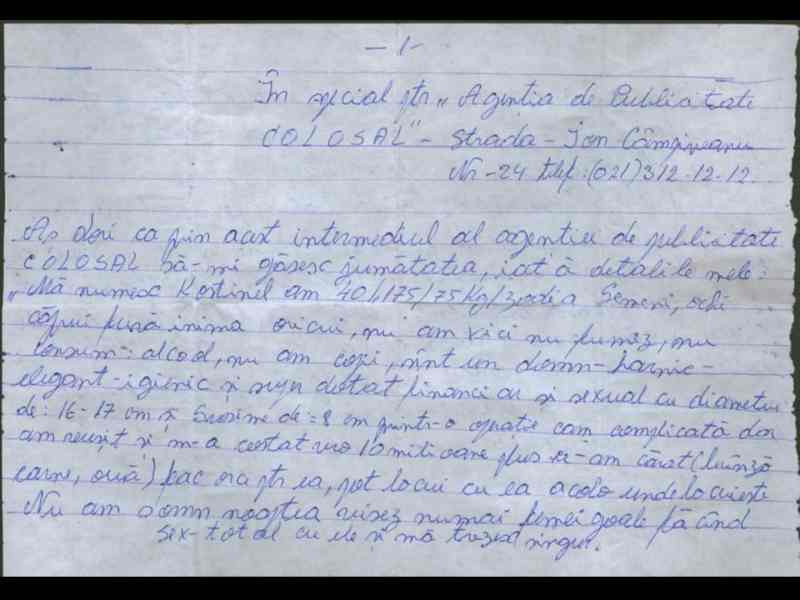 - 1 -
În special ptr „Agentia de Publicitate
COLOSAL" - Strada - Ion Câmpineanu
Nr - 24 telef: (021) 312-12-12.
Aș dori ca prin acest intermediul al agentiei de publicitate
COLOSAL să-mi găsesc jumătatea, iată detaliile mele:
„Mă numesc Kostinel am 40/1,75/75 Kg/zodia Gemeni, ochi
căprui fură inima oricui, nu am vicii nu fumez, nu
consum: alcool, nu am copii, sînt un domn - harnic -
elegant - igienic și super dotat financiar și sexual cu diametru
de: 16-17 cm și Grosime de = 8 cm printr-o operație cam complicată dar
am reușit și m-a costat vro 10 milioane plus că i-am cărat (brînză
carne, ouă) fac orice ptr ea, pot locui cu ea acolo unde locuiește
Nu am somn noaptea visez numai femei goale făcînd
sex-total cu ele și mă trezesc singur.